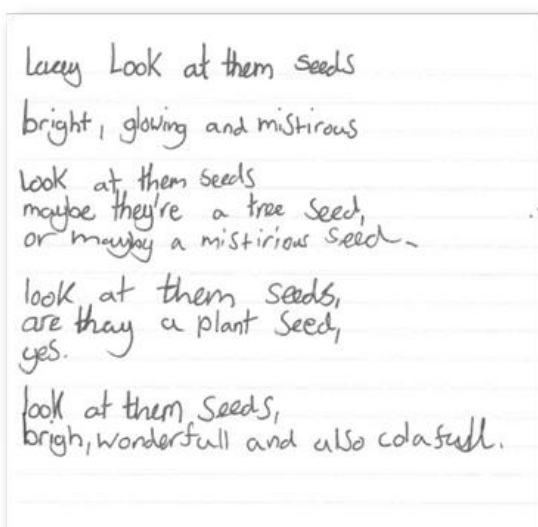 Lacey Look at them seeds
bright, glowing and mistirous
Look at them seeds
maybe they're a tree seed,
or mayby a mistirious seed.
look at them seeds,
are thay a plant seed,
yes.
look at them seeds,
brigh, wonderfull and also colafull.